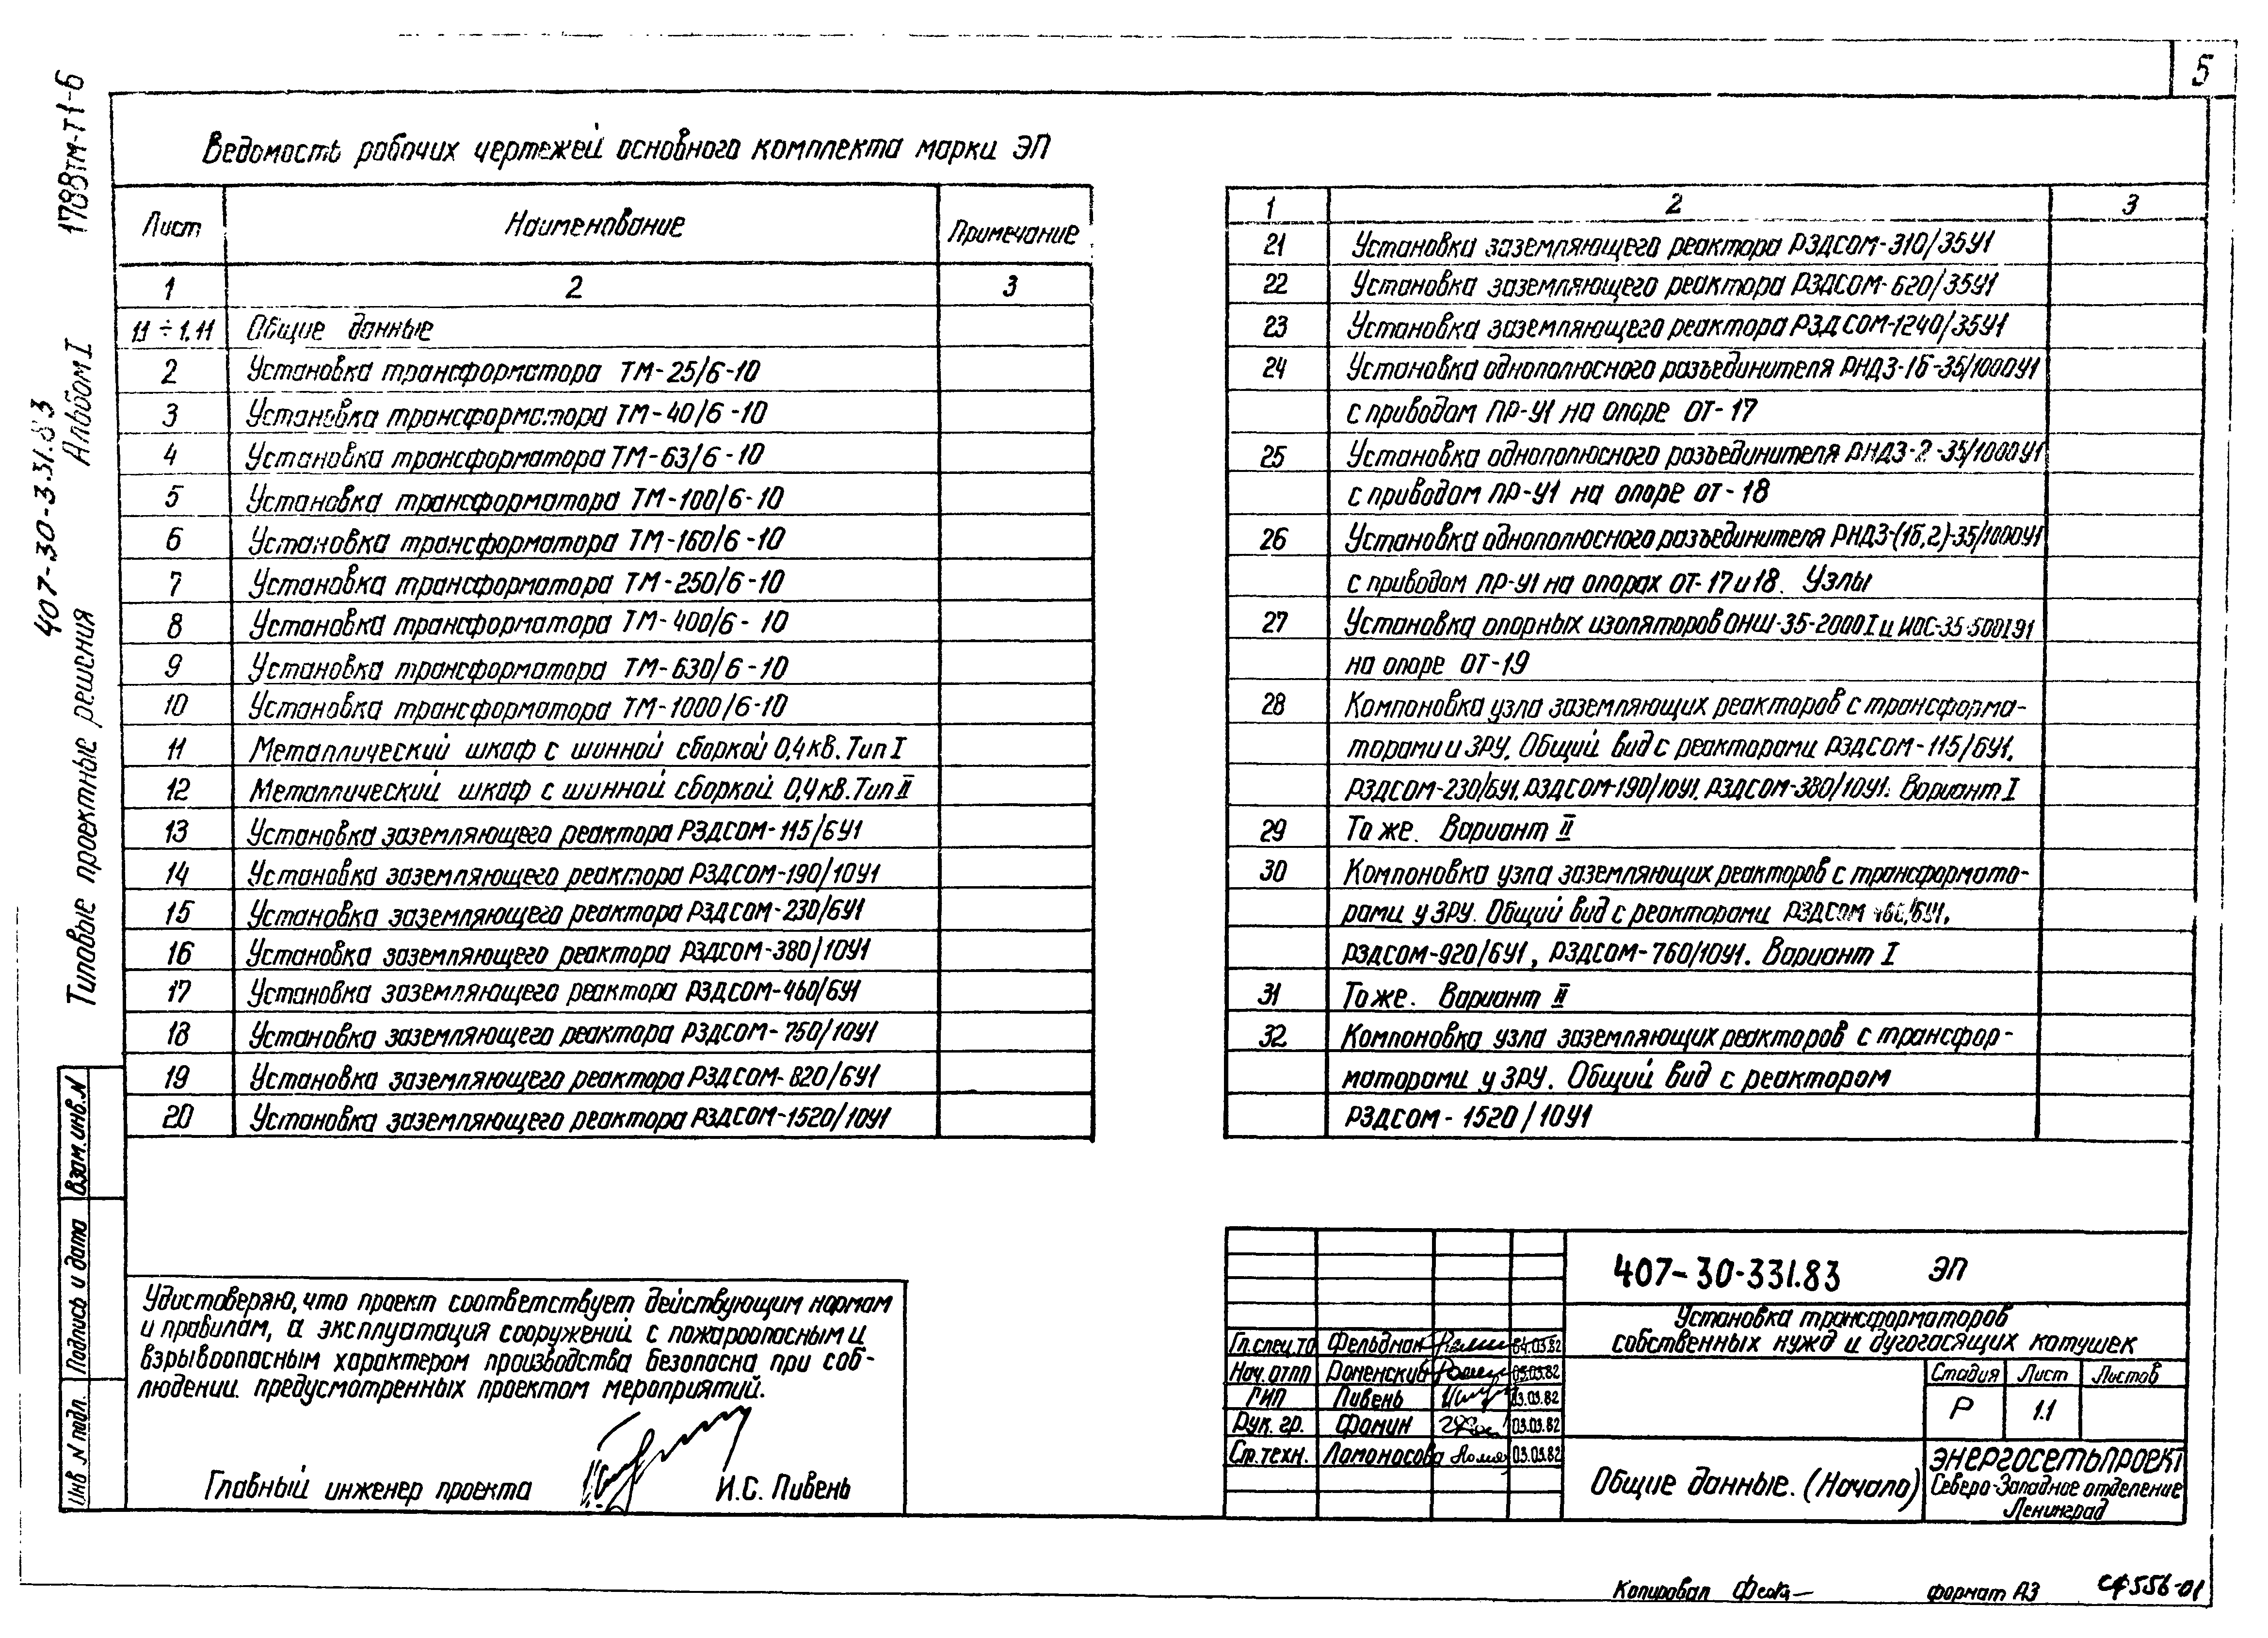 5
1788тм-т1-6
407-30-3.31.83
Типовые проектные решения Альбом I
Ведомость рабочих чертежей основного комплекта марки ЭП
Лист Наименование Примечание
1 2 3
1.1 ÷ 1.11 Общие данные
2 Установка трансформатора ТМ-25/6-10
3 Установка трансформатора ТМ-40/6-10
4 Установка трансформатора ТМ-63/6-10
5 Установка трансформатора ТМ-100/6-10
6 Установка трансформатора ТМ-160/6-10
7 Установка трансформатора ТМ-250/6-10
8 Установка трансформатора ТМ-400/6-10
9 Установка трансформатора ТМ-630/6-10
10 Установка трансформатора ТМ-1000/6-10
11 Металлический шкаф с шинной сборкой 0,4кВ. Тип I
12 Металлический шкаф с шинной сборкой 0,4кВ. Тип II
13 Установка заземляющего реактора РЗДСОМ-115/6У1
14 Установка заземляющего реактора РЗДСОМ-190/10У1
15 Установка заземляющего реактора РЗДСОМ-230/6У1
16 Установка заземляющего реактора РЗДСОМ-380/10У1
17 Установка заземляющего реактора РЗДСОМ-460/6У1
18 Установка заземляющего реактора РЗДСОМ-750/10У1
19 Установка заземляющего реактора РЗДСОМ-820/6У1
20 Установка заземляющего реактора РЗДСОМ-1520/10У1
1 2 3
21 Установка заземляющего реактора РЗДСОМ-310/35У1
22 Установка заземляющего реактора РЗДСОМ-620/35У1
23 Установка заземляющего реактора РЗДСОМ-1240/35У1
24 Установка однополюсного разъединителя РНДЗ-1б-35/1000У1
с приводом ПР-У1 на опоре ОТ-17
25 Установка однополюсного разъединителя РНДЗ-2-35/1000У1
с приводом ПР-У1 на опоре ОТ-18
26 Установка однополюсного разъединителя РНДЗ-(1б,2)-35/1000У1
с приводом ПР-У1 на опорах ОТ-17 и 18. Узлы
27 Установка опорных изоляторов ОНШ-35-2000I и ИОС-35-500I У1
на опоре ОТ-19
28 Компоновка узла заземляющих реакторов с трансформа-
торами и ЗРУ. Общий вид с реакторами РЗДСОМ-115/6У1,
РЗДСОМ-230/6У1, РЗДСОМ-190/10У1, РЗДСОМ-380/10У1. Вариант I
29 То же. Вариант II
30 Компоновка узла заземляющих реакторов с трансформато-
рами у ЗРУ. Общий вид с реакторами РЗДСОМ 460/6У1,
РЗДСОМ-920/6У1, РЗДСОМ-760/10У1. Вариант I
31 То же. Вариант II
32 Компоновка узла заземляющих реакторов с трансфор-
маторами у ЗРУ. Общий вид с реактором
РЗДСОМ-1520/10У1
Взам. инв. N
Подпись и дата
Инв N подл.
Удистоверяю, что проект соответствует действующим нормам
и правилам, а эксплуатация сооружений с пожароопасным и
взрывоопасным характером производства безопасна при соб-
людении предусмотренных проектом мероприятий.
Главный инженер проекта И.С. Пивень
407-30-331.83 ЭП
Установка трансформаторов
собственных нужд и дугогасящих катушек
Гл. спец. то Фельдман 04.03.82
Нач. отпп Роменский 03.03.82
ГИП Пивень 03.03.82
Рук. гр. Фомин 03.03.82
Ст. техн. Ломоносова 03.03.82
Стадия Лист Листов
Р 1.1
Общие данные. (Начало)
ЭНЕРГОСЕТЬПРОЕКТ
Северо-Западное отделение
Ленинград
Копировал формат А3 сф 556-01